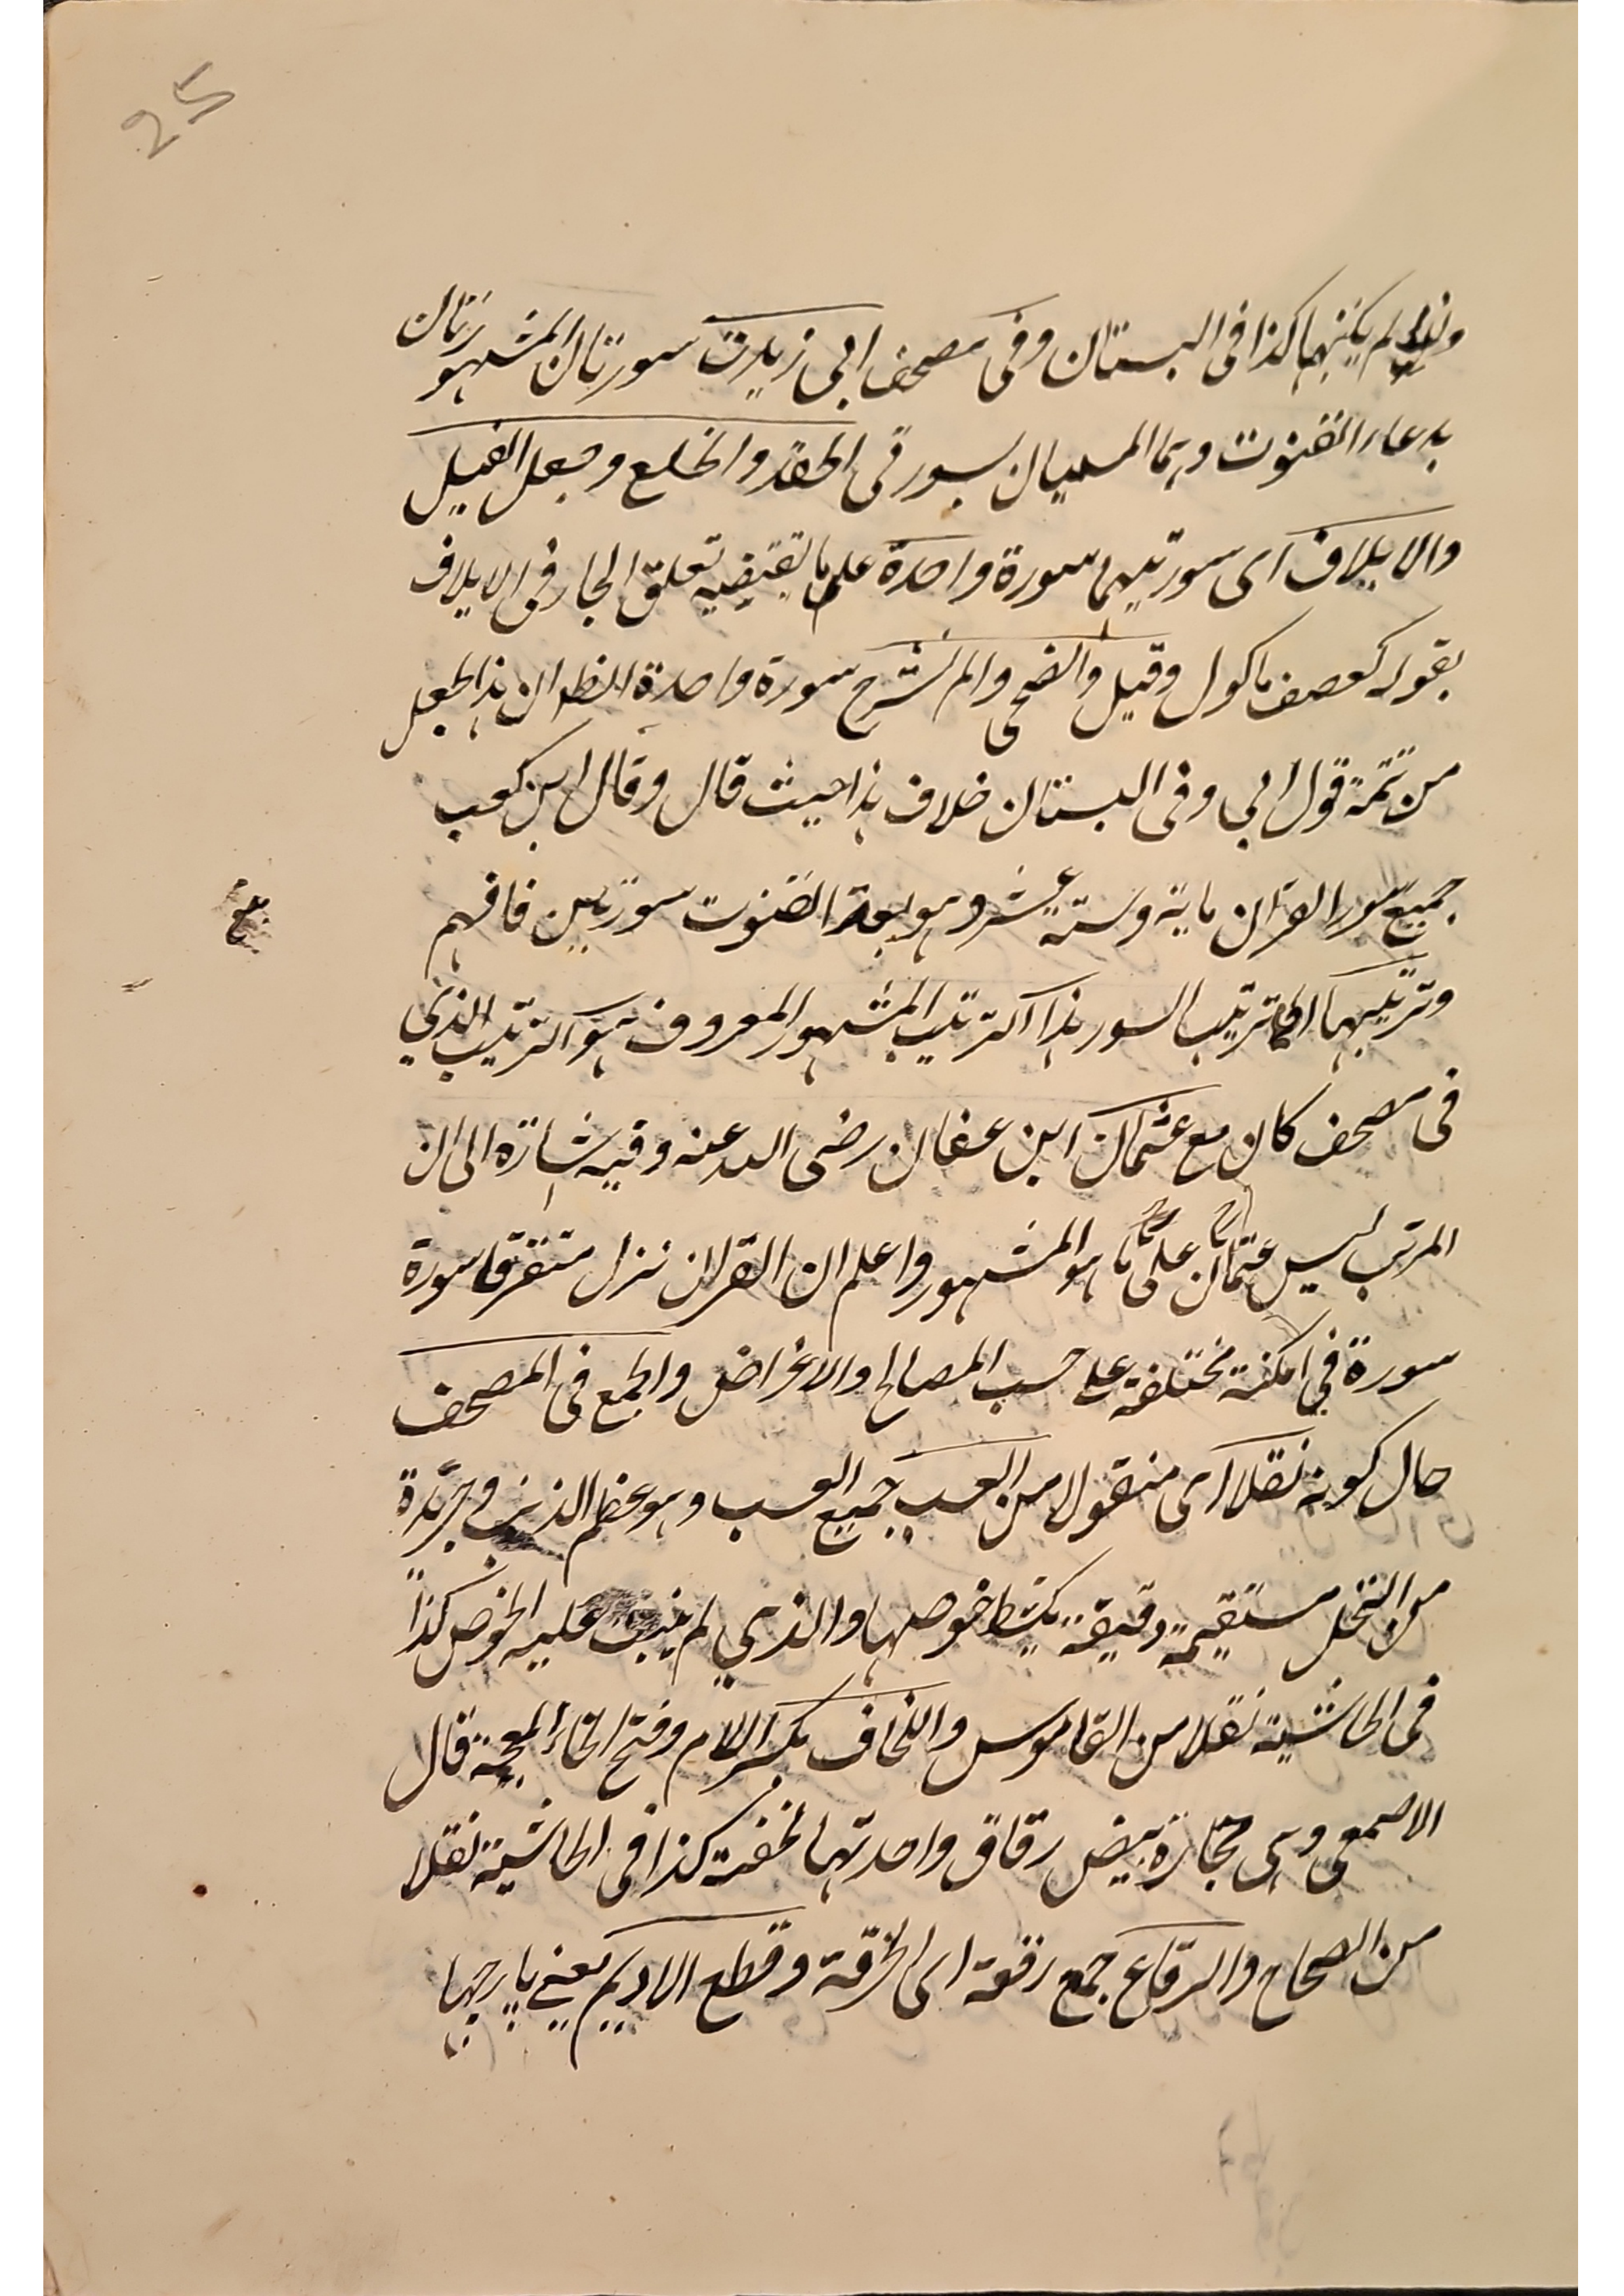 25
ولذا لم يكتبهما كذا فى البستان وفى مصحف ابى زيدت سورتان المشهورتان
بدعاء القنوت وهما المسميان بسورتى الحفد والخلع وجعل الفيل
والايلاف اى سورتيهما سورة واحدة على ما يقتضيه تعلق الجار فى الايلاف
بقوله كعصف ماكول وقيل والضحى والم نشرح سورة واحدة الظ ان هذا الجعل
من تتمة قول ابي وفى البستان خلاف هذا حيث قال وقال ابن كعب
جميع سور القران ماية وستة عشر وهو يعد القنوت سورتين فافهم
وترتيبها اى ترتيب السور هذا الترتيب المشهور المعروف هو الترتيب الذي
فى مصحف كان مع عثمان ابن عفان رضى الله عنه وفيه اشارة الى ان
المرتب ليس عثمان على ما هو المشهور واعلم ان القران نزل متفرقا سورة
سورة في امكنة مختلفة على حسب المصالح والاغراض والجمع فى المصحف
حال كونه نقلا اى منقولا من العسب جميع العسب وهو عظم الذنب وجريدة
من النخل مستقيمة دقيقة يكشط خوصها والذي لم ينبت عليه الخوص كذا
فى الحاشية نقلا من القاموس واللخاف بكسر اللام وفتح الخاء المعجمة قال
الاصمعى وهى حجارة بيض رقاق واحدتها لخفة كذا فى الحاشية نقلا
من الصحاح والرقاع جمع رقعة اى الخرقة وقطع الاديم يعنى پارچها